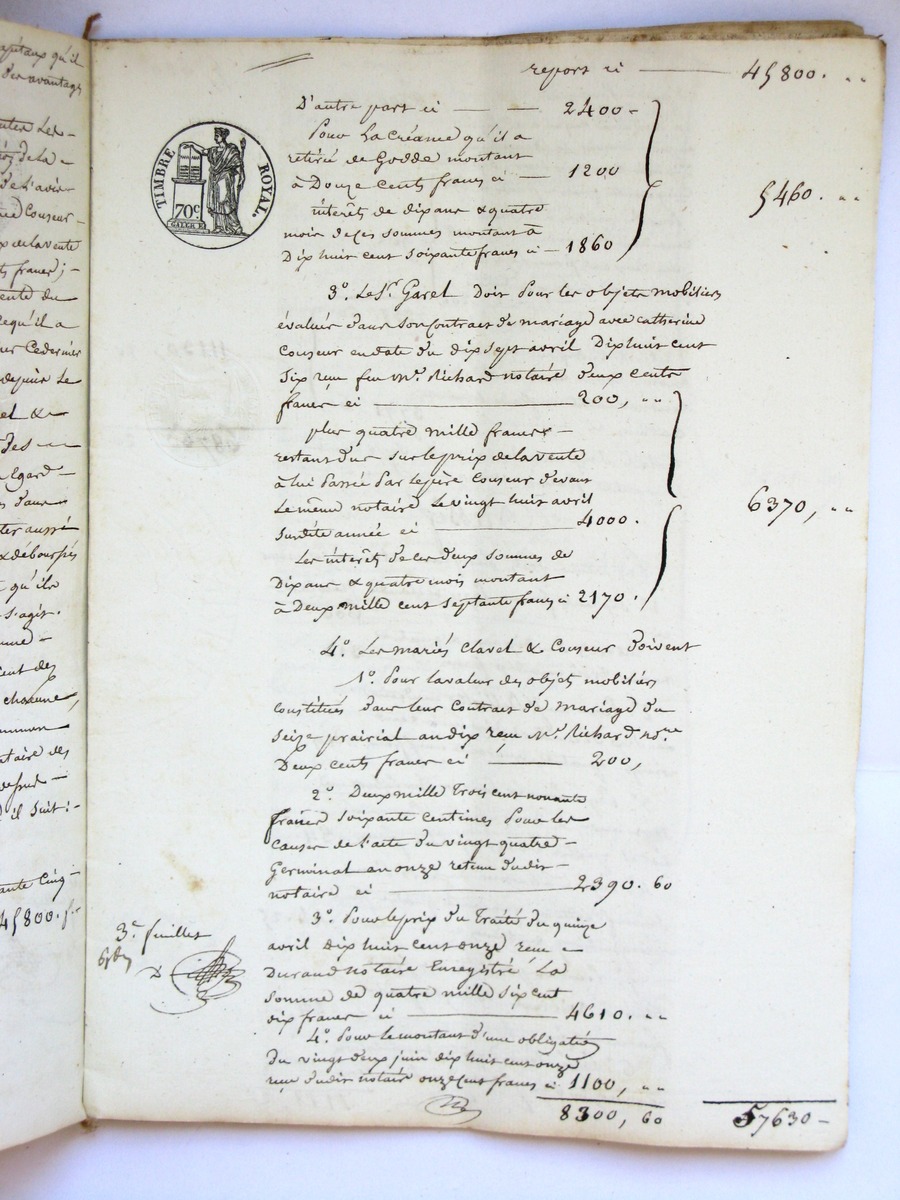 report ci — 45800. "
D'autre part ci — — 2400 -
Pour La Créance qu'il a
retiré de Godde montant
à Douze Cents francs ci — 1200
5460. "
intérêts de dix ans & quatre
mois de ces sommes montant à
Dix huit cent soixante francs ci — 1860
TIMBRE ROYAL.
70c.
3.° Le Sr. Garel Doit Pour les objets mobiliers
évalués dans son Contrat de mariage avec catherine
Couseur en date du dix sept avril Dix huit cent
six reçu feu Me. Richard notaire deux cents
francs ci — 200, "
plus quatre mille francs -
restant dus sur le prix de la vente
à lui Passée Par le père Couseur devant
Le même notaire Le vingt huit avril
susdite année ci — 4000.
6370, "
Les intérêts de ces deux sommes de
Dix ans & quatre mois montant
à Deux mille cent septante francs ci 2170.
4.° Les mariés Clavel & Couseur doivent
1.° Pour la valeur des objets mobiliers
constitués dans leur Contrat de mariage du
seize prairial an dix reçu Me. Richard nore.
Deux cents francs ci — 200,
2.° Deux mille Trois cent nonante
francs soixante centimes Pour les
causes de l'acte du vingt quatre -
Germinal an onze retenu dudit -
notaire ci — 2390. 60
3.° Pour le prix du Traité du quinze
avril dix huit cent onze reçu
Durand notaire Enregistré La
somme de quatre mille six cent
dix francs ci — 4610. "
3e. feuillet
4.° Pour le montant d'une obligation
du vingt deux juin dix huit cent onze
reçu dudit notaire onze cent francs ci 1100, "
8300, 60
57630 -
apitaux qu'il
des avantages
de la vente
francs ; -
qu'il a
depuis Le
& débours
qu'ils
s'agit.
chacune,
il suit : -
ante Cinq -
45800. f